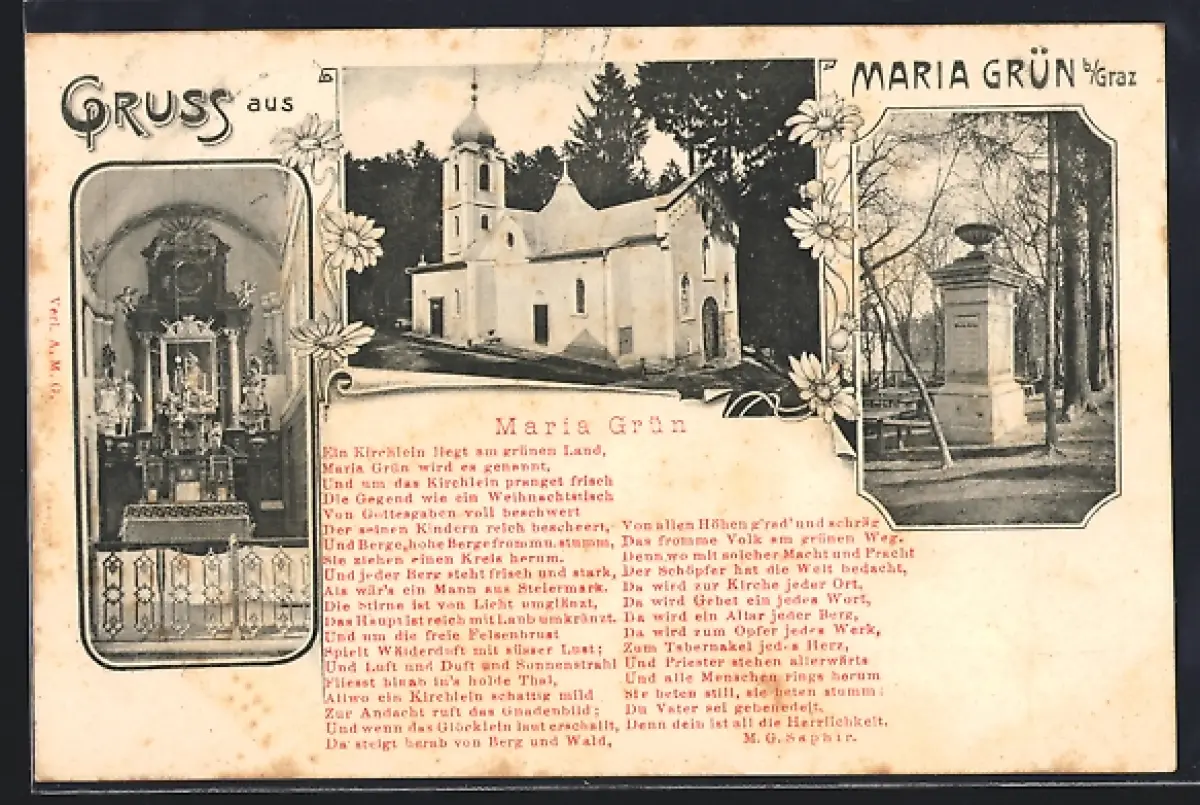 GRUSS aus
MARIA GRÜN b/Graz
Verl. A. M. G.
Maria Grün
Ein Kirchlein liegt am grünen Land,
Maria Grün wird es genannt,
Und um das Kirchlein pranget frisch
Die Gegend wie ein Weihnachtstisch
Von Gottesgaben voll beschwert
Der seinen Kindern reich bescheert,
Und Berge, hohe Berge fromm u. stumm,
Sie ziehen einen Kreis herum.
Und jeder Berg steht frisch und stark,
Als wär's ein Mann aus Steiermark.
Die Stirne ist von Licht umglänzt,
Das Haupt ist reich mit Laub umkränzt.
Und um die freie Felsenbrust
Spielt Wälderduft mit süsser Lust;
Und Luft und Duft und Sonnenstrahl
Fliesst hinab in's holde Thal,
Allwo ein Kirchlein schattig mild
Zur Andacht ruft das Gnadenbild;
Und wenn das Glöcklein laut erschallt,
Da steigt herab von Berg und Wald,
Von allen Höhen g'rad' und schräg
Das fromme Volk am grünen Weg.
Denn wo mit solcher Macht und Pracht
Der Schöpfer hat die Welt bedacht,
Da wird zur Kirche jeder Ort,
Da wird Gebet ein jedes Wort,
Da wird ein Altar jeder Berg,
Da wird zum Opfer jedes Werk,
Zum Tabernakel jedes Herz,
Und Priester stehen allerwärts
Und alle Menschen rings herum
Sie beten still, sie beten stumm:
Du Vater sei gebenedeit,
Denn dein ist all die Herrlichkeit.
M. G. Saphir.